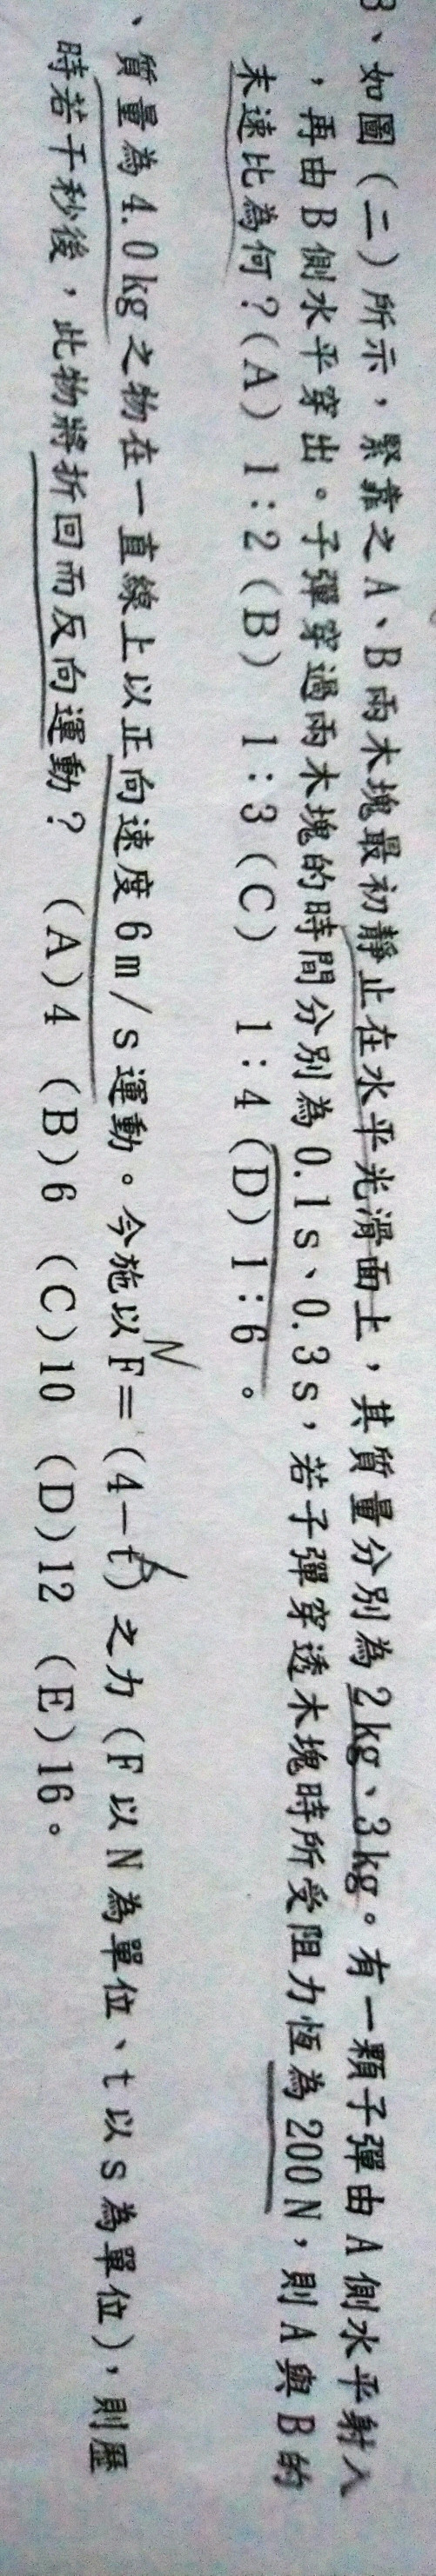 3、如圖(二)所示，緊靠之A、B兩木塊最初靜止在水平光滑面上，其質量分別為2kg、3kg。有一顆子彈由A側水平射入
，再由B側水平穿出。子彈穿過兩木塊的時間分別為0.1s、0.3s，若子彈穿透木塊時所受阻力恆為200N，則A與B的
末速比為何？(A) 1:2 (B) 1:3 (C) 1:4 (D) 1:6 。
、質量為4.0kg之物在一直線上以正向速度6m/s運動。今施以F=(4-t)之力(F以N為單位、t以s為單位)，則歷
N
時若干秒後，此物將折回而反向運動？ (A)4 (B)6 (C)10 (D)12 (E)16。